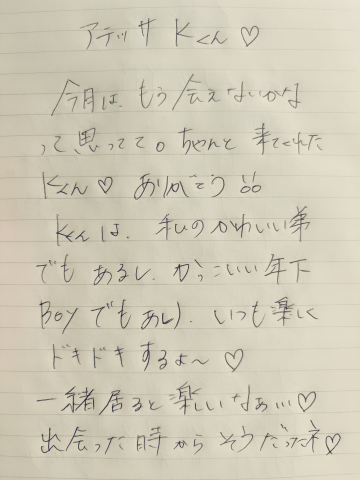 アテッサ Kくん♡
今月は、もう会えないかな
って思ってて。ちゃんと来てくれた
Kくん♡ ありがとう
Kくんは、私のかわいい弟
でもあるし、かっこいい年下
Boyでもあし)、いつも楽しく
ドキドキするよ〜♡
一緒居ると楽しいなぁ…♡
出会った時からそうだったネ♡